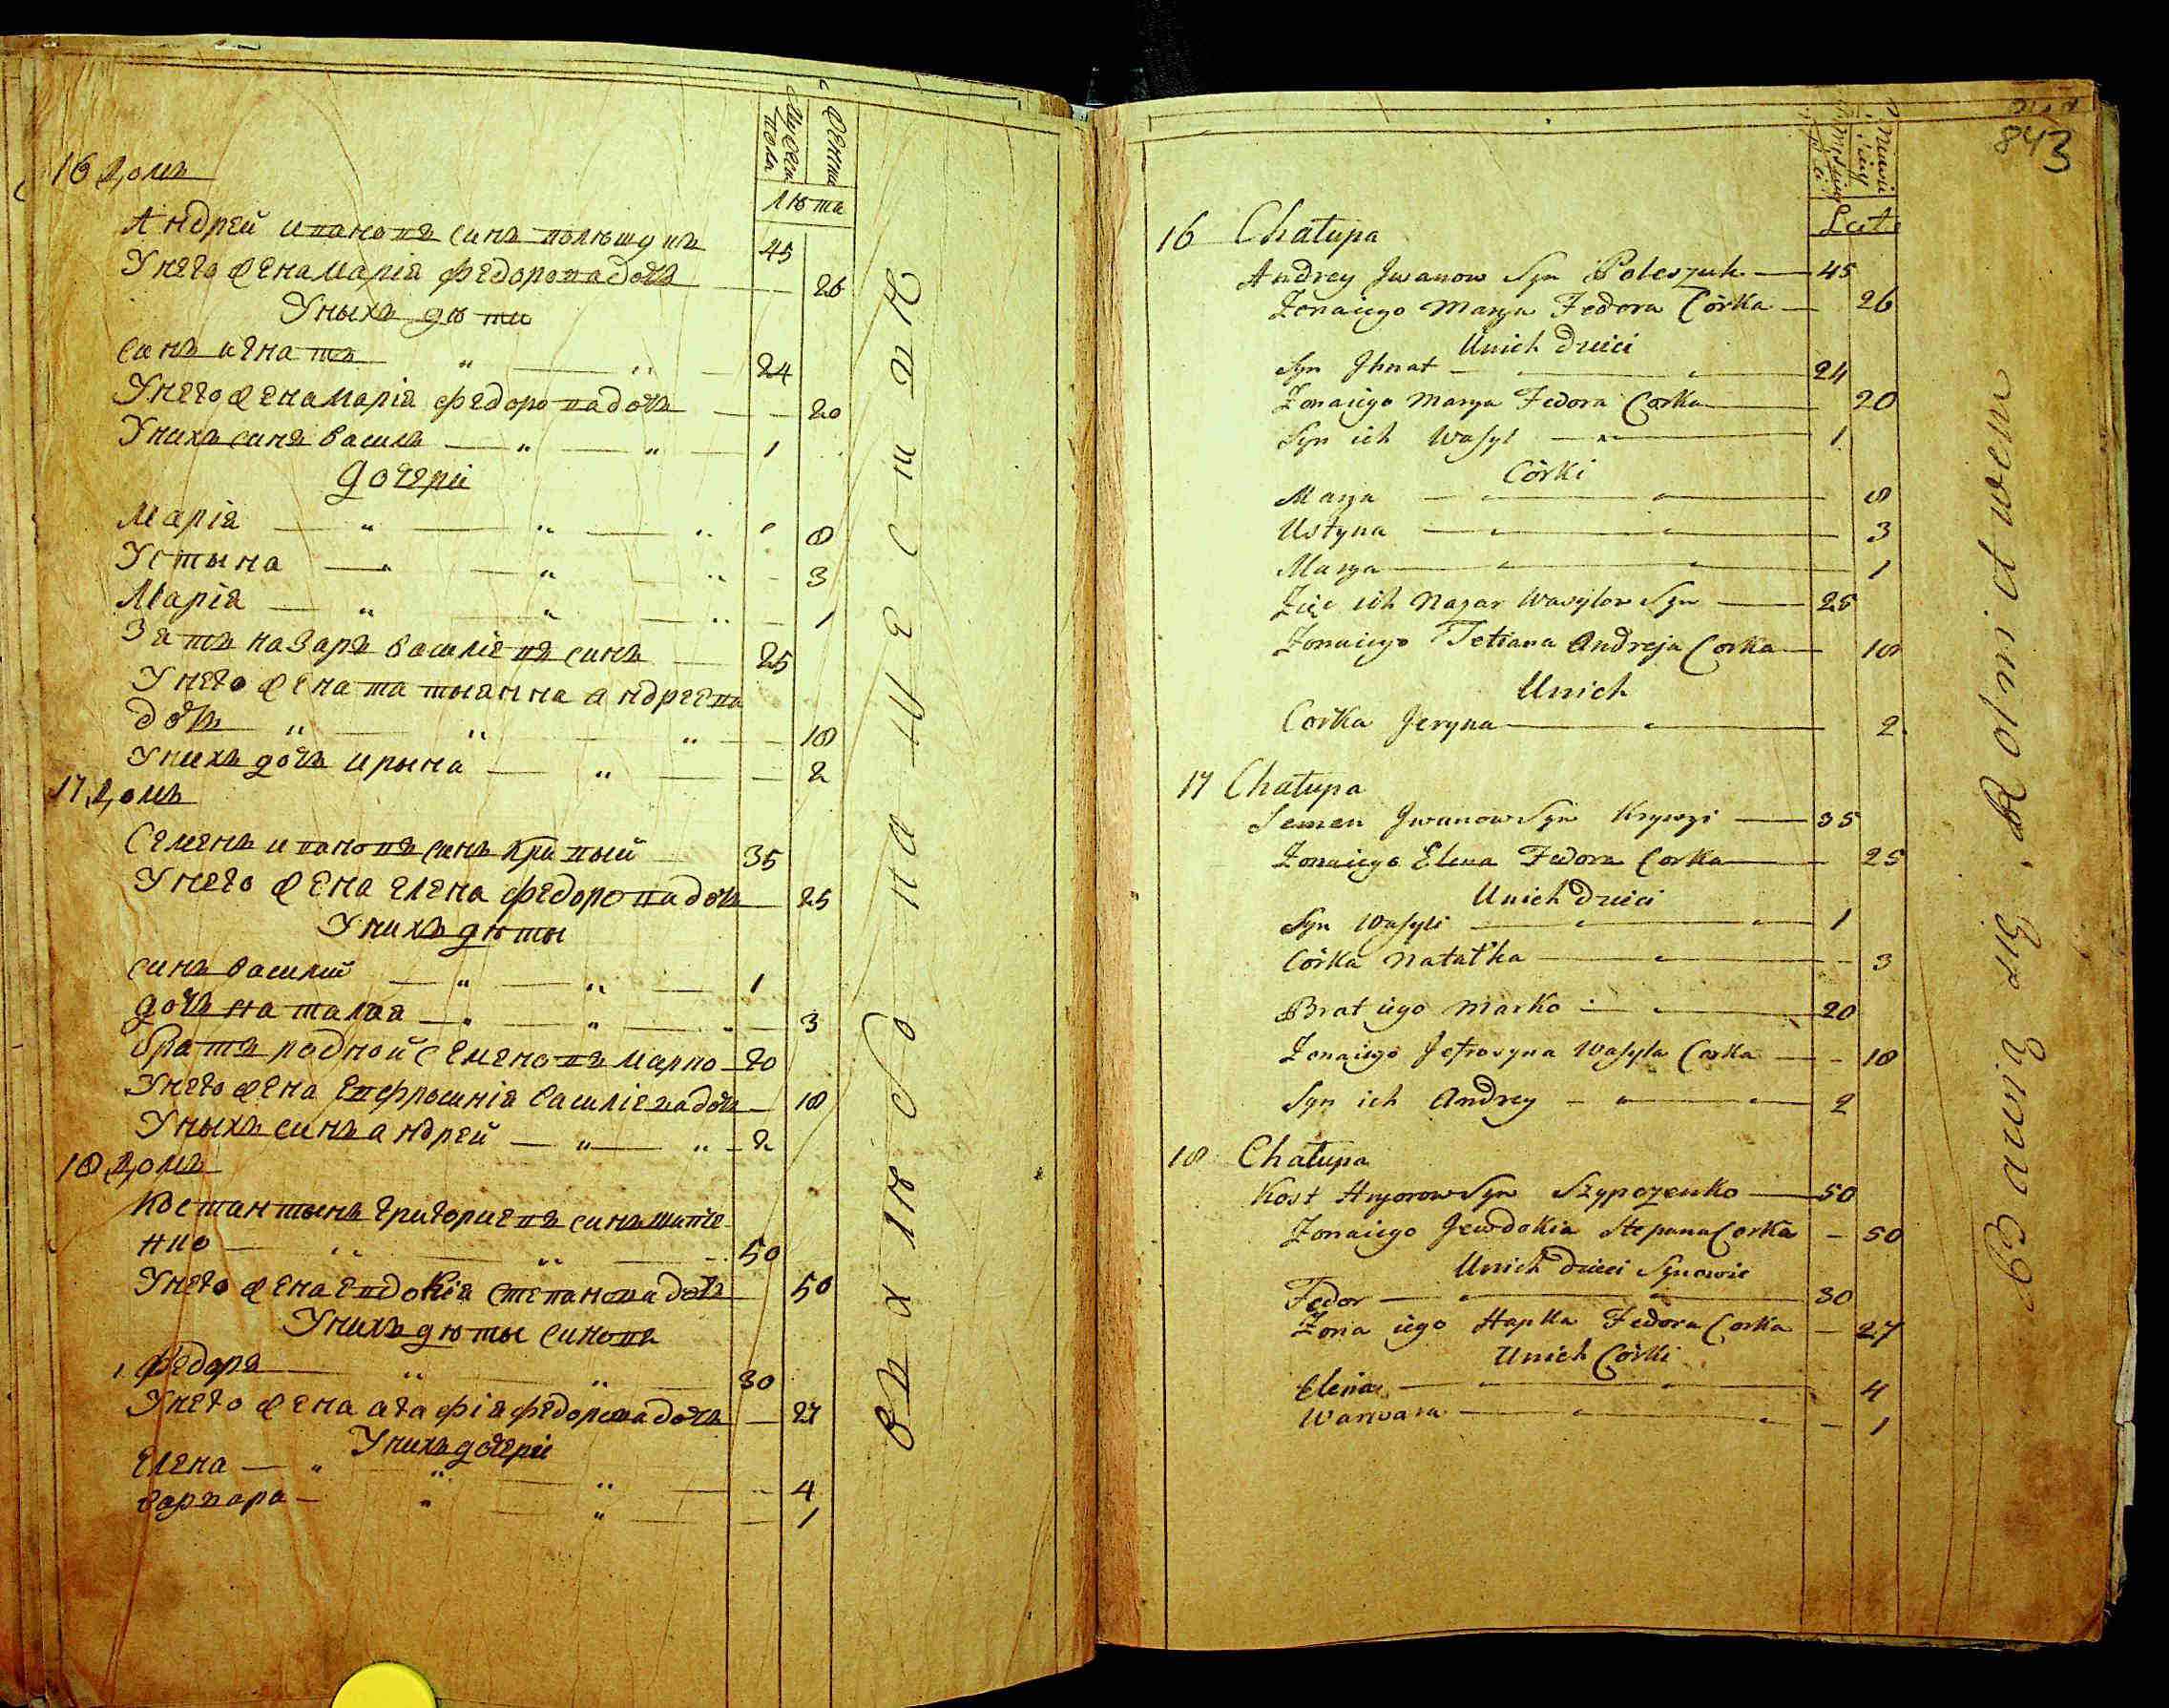 Мужеска пола
Женска
Лѣта
16 Домъ
Андрей Ивановъ синъ Полѣщукъ 45
У него жена Марія Федорова дочь 26
У ныхъ дѣти
синъ Игнатъ 24
У него жена Марія Федорова дочь 20
У нихъ синъ Василь 1
дочери
Марія 8
Устына 3
Марія 1
Зать Назаръ Василіевъ синъ 25
У него жена Татыанна Андреева
дочь 18
У нихъ дочь Ирына 2
17 Домъ
Семенъ Ивановъ синъ Кривый 35
У него жена Елена Федорова дочь 25
У нихъ дѣты
синъ Василий 1
дочь Наталая 3
братъ родной Семеновъ Марко 20
У него жена Евфросинія Василіева дочь 18
У ныхъ синъ Андрей 2
18 Домъ
Костантынъ Григориевъ синъ Шипче
нко 50
У него жена Евдокія Степанова дочь 50
У нихъ дѣты синовя
Федоръ 30
У него жена Агафія Федорова дочь 27
У нихъ дочери
Елена 4
Варвара 1
въ хлѣбопашествѣ
843
Lat
16 Chałupa
Andrey Jwanow Syn Poleszuk 45
Żona iego Marya Fedora Córka 26
U nich dzieci
Syn Jhnat 24
Żona iego Marya Fedora Corka 20
Syn ich Wasyl 1
Córki
Marya 8
Ustyna 3
Marya 1
Zięc ich Nazar Wasylow Syn 25
Żona iego Tetiana Andreja Corka 18
U nich
Corka Jeryna 2
17 Chałupa
Semen Jwanow Syn Krywyi 35
Żona iego Elena Fedora Corka 25
U nich dzieci
Syn Wasyli 1
Córka Natałka 3
Brat iego Marko 20
Żona iego Jefrosyna Wasyla Corka 18
Syn ich Andrey 2
18 Chałupa
Kost Hryorow Syn Szypczenko 50
Żona iego Jewdokia Stepana Corka 50
U nich dzieci Synowie
Fedor 30
Żona iego Hapka Fedora Corka 27
U nich Córki
Elena 4
Warwara 1
Bawią się Rolnictwem